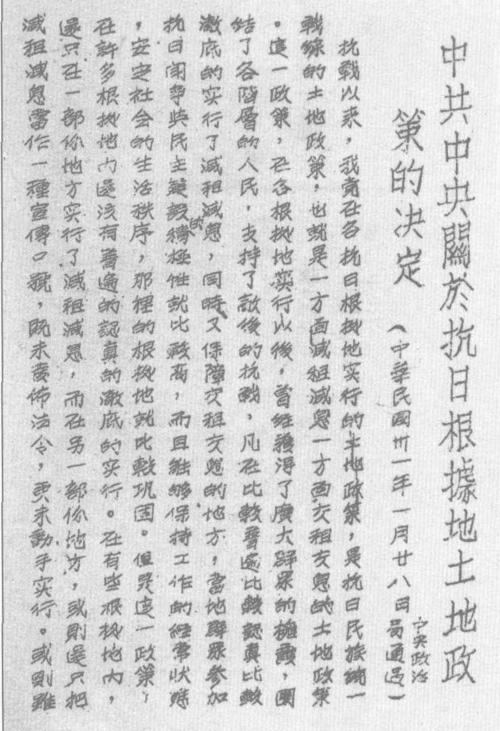 中共中央關於抗日根據地土地政
策的决定
(中華民國卅一年一月廿八日中央政治局通过)
抗戰以来,我党在各抗日根拠地实行的土地政策,是抗日民族統一
戰線的土地政策,也就是一方面减租减息一方面交租交息的土地政策
。這一政策,在各根拠地实行以後,曾經獲得了廣大群眾的擁護,團
結了各階層的人民,支持了敵後的抗戰,凡在比較普遍比較認真比較
澈底的实行了减租减息,同時又保障交租交息的地方,當地群眾參加
抗日鬥爭與民主建設的積極性就比較高,而且能够保持工作的經常狀態
,安定社会的生活秩序,那裡的根拠地就比較巩固。但是這一政策,
在許多根拠地内還没有普遍的認真的澈底的实行。在有些根拠地内,
還只在一部份地方实行了减租减息,而在另一部份地方,或則還只把
减租减息當作一種宣傳口號,既未發佈法令,更未動手实行。或則雖